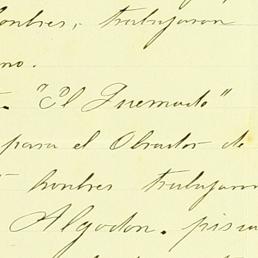 hombres, trabajaron
no.
"El Quemado"
para el Obrador de
hombres trabajaron
Algodon. pisca